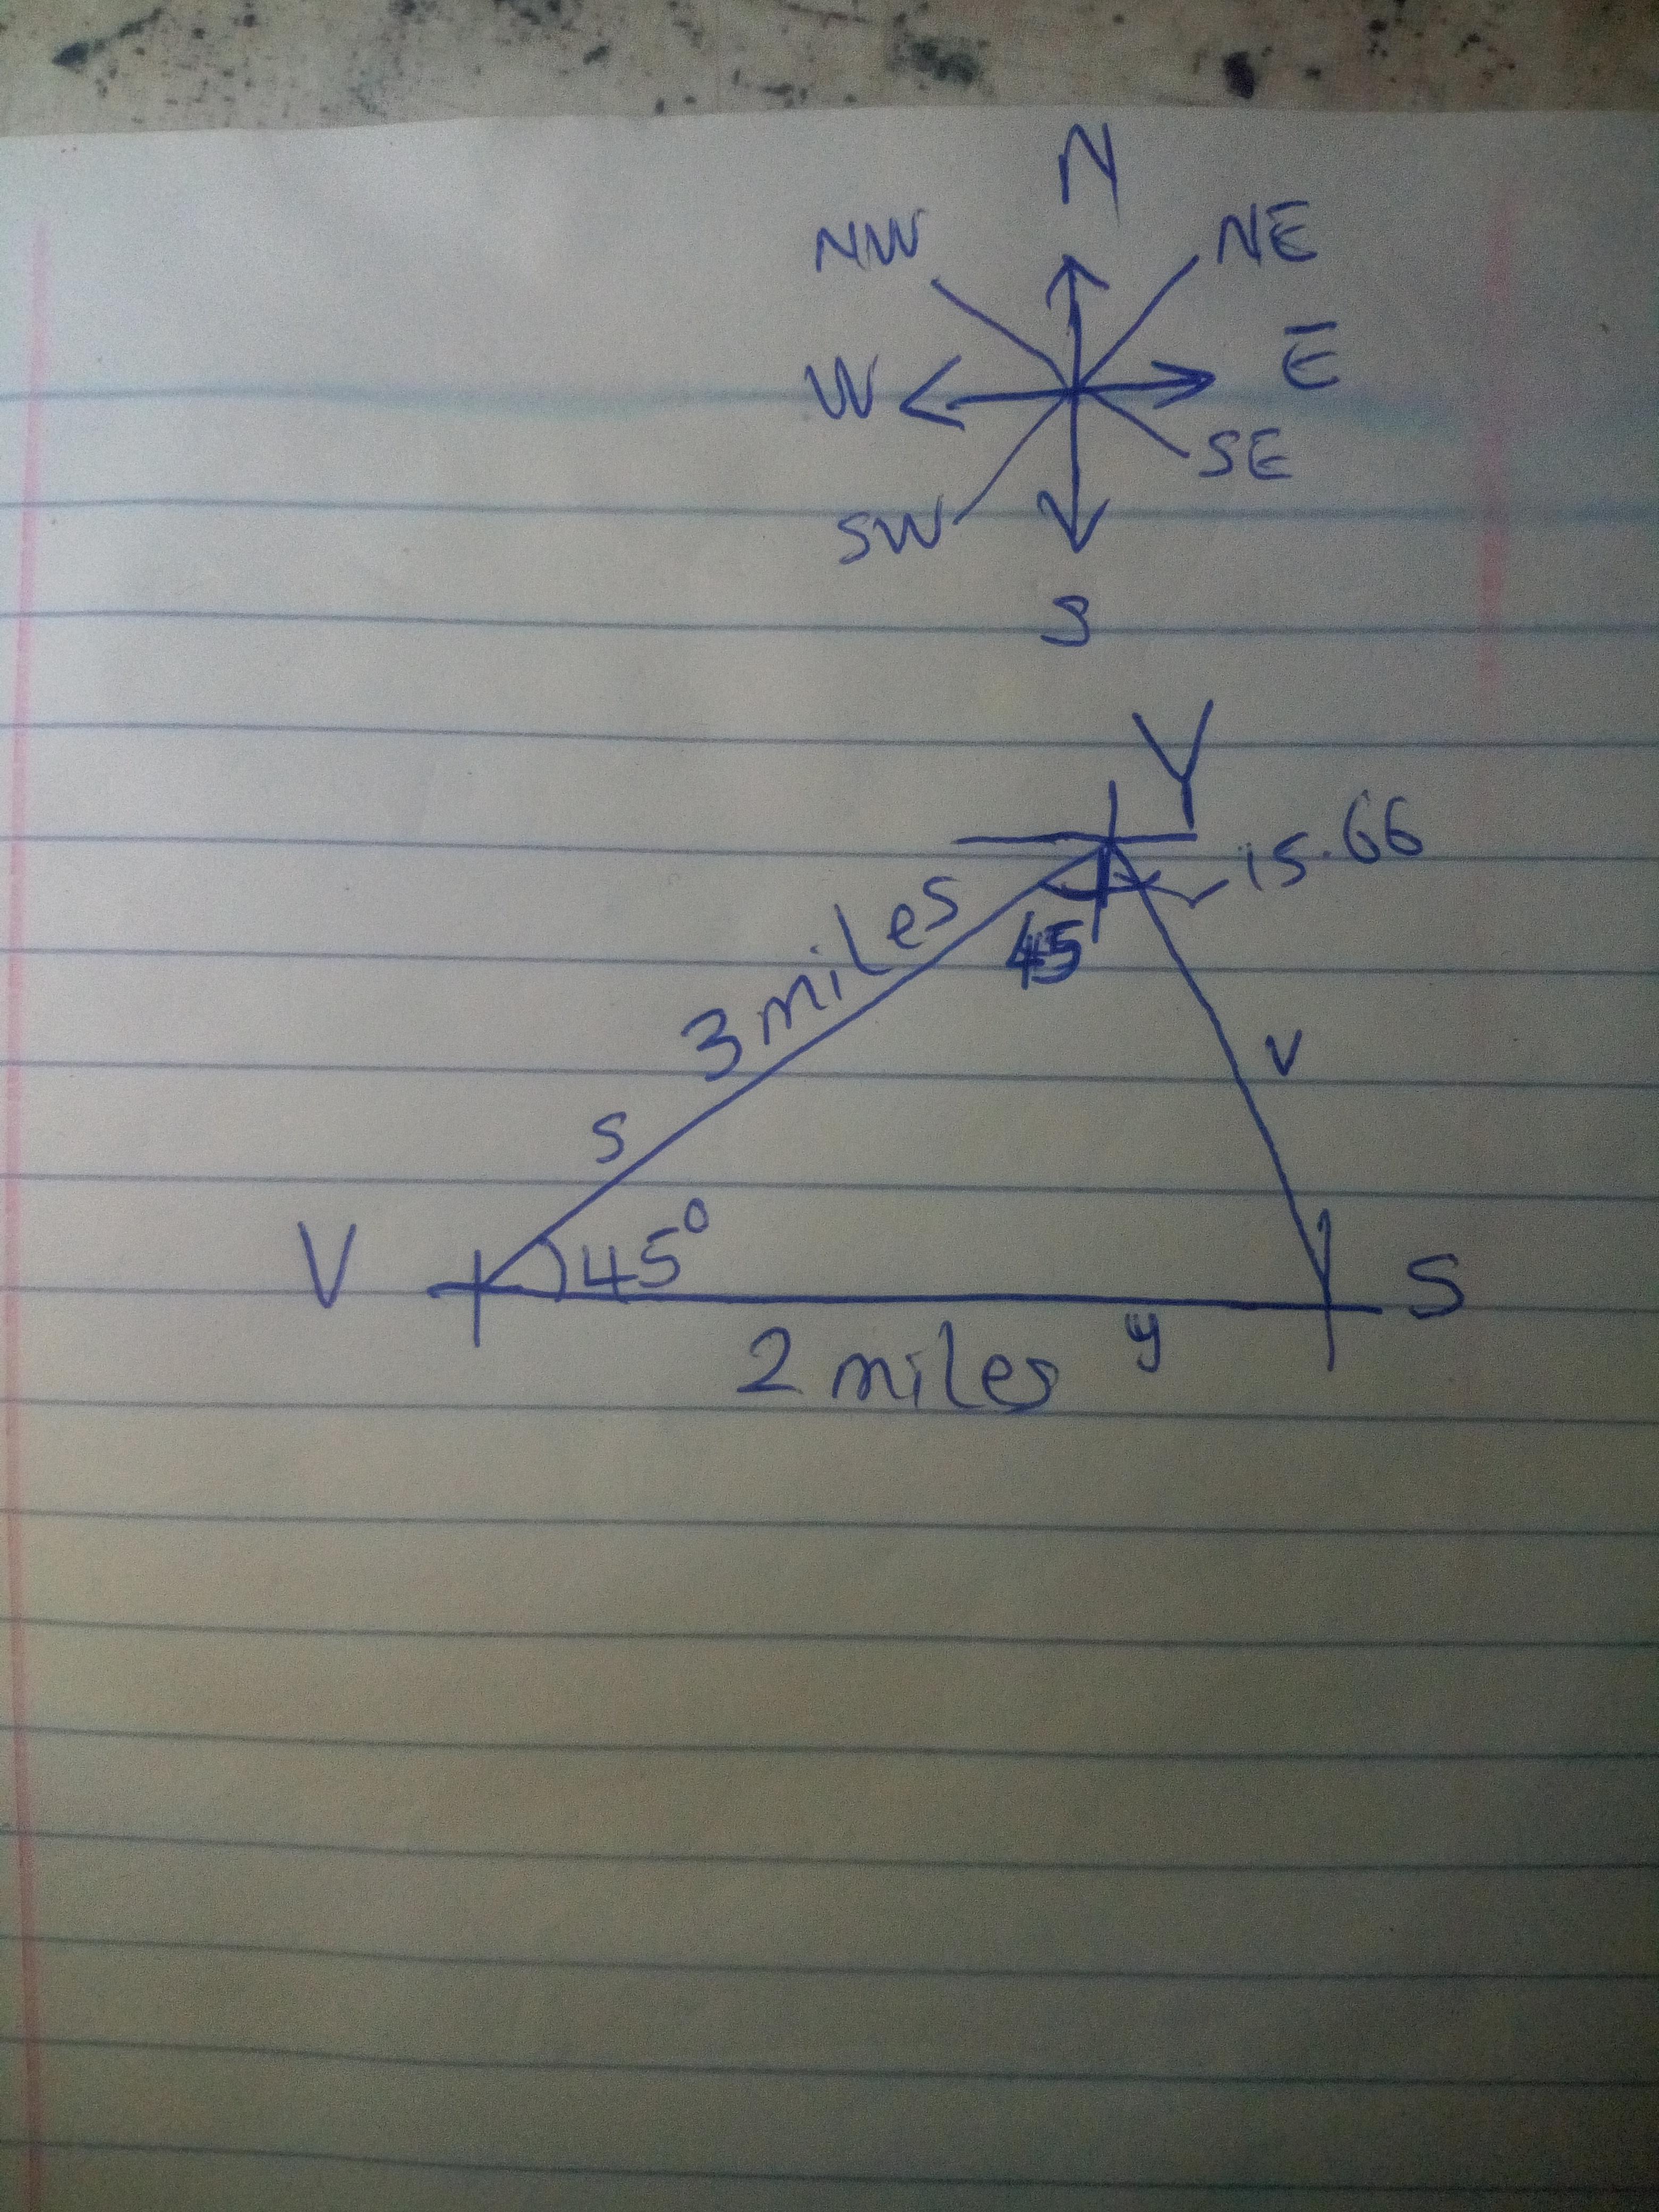 N
NW NE
W E
SE
SW
S
Y
15.66
45
3 miles
v
s
V 45° S
2 miles y